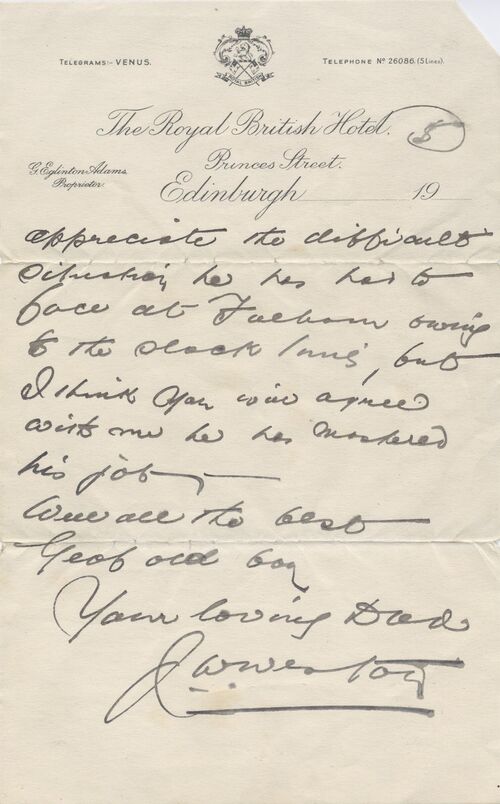 TELEGRAMS:- VENUS.
TELEPHONE Nº 26086. (5 Lines).
ROYAL BRITISH
The Royal British Hotel.
5
G. Eglinton Adams,
Proprietor.
Princes Street.
Edinburgh 19
appreciate the difficult
situation he has had to
face at Fulham owing
to the slack times, but
I think you will agree
with me he has mastered
his job
Well all the best
Geof old boy
Your loving Dad
J W Weston